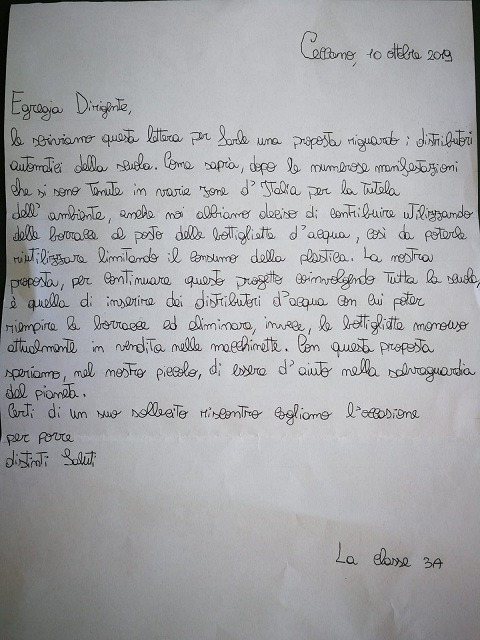 Ceccano, 10 ottobre 2019
Egregia Dirigente,
le scriviamo questa lettera per farle una proposta riguardo i distributori
automatici della scuola. Come saprà, dopo le numerose manifestazioni
che si sono tenute in varie zone d'Italia per la tutela
dell'ambiente, anche noi abbiamo deciso di contribuire utilizzando
delle borracce al posto delle bottigliette d'acqua, così da poterle
riutilizzare limitando il consumo della plastica. La nostra
proposta, per continuare questo progetto coinvolgendo tutta la scuola,
è quella di inserire dei distributori d'acqua con cui poter
riempire le borracce ed eliminare, invece, le bottigliette monouso
attualmente in vendita nelle macchinette. Con questa proposta
speriamo, nel nostro piccolo, di essere d'aiuto nella salvaguardia
del pianeta.
Certi di un suo sollecito riscontro cogliamo l'occasione
per porre
distinti saluti
La classe 3A